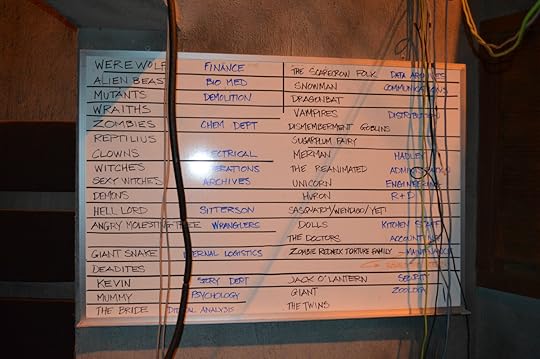 WEREWOLF FINANCE
ALIEN BEAST BIO MED
MUTANTS DEMOLITION
WRAITHS
ZOMBIES CHEM DEPT
REPTILIUS
CLOWNS ELECTRICAL
WITCHES OPERATIONS
SEXY WITCHES ARCHIVES
DEMONS
HELL LORD SITTERSON
ANGRY MOLESTING TREE WRANGLERS
GIANT SNAKE INTERNAL LOGISTICS
DEADITES
KEVIN DEPT
MUMMY PSYCHOLOGY
THE BRIDE DIGITAL ANALYSIS
THE SCARECROW FOLK DATA ARCHIVES
SNOWMAN COMMUNICATIONS
DRAGONBAT
VAMPIRES DISTRIBUTION
DISMEMBERMENT GOBLINS
SUGARPLUM FAIRY
MERMAN HADLEY
THE REANIMATED ADMINISTRATION
UNICORN ENGINEERING
HURON R+D
SASQUATCH/WENDIGO/YETI
DOLLS KITCHEN STAFF
THE DOCTORS ACCOUNTING
ZOMBIE REDNECK TORTURE FAMILY MAINTENANCE
JACK O'LANTERN
GIANT ZOOLOGY
THE TWINS